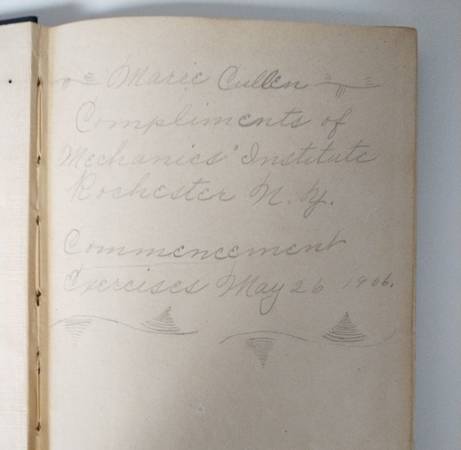 Marie Cullen
Compliments of
Mechanics' Institute
Rochester N. Y.
Commencement
Exercises May 26 1906.